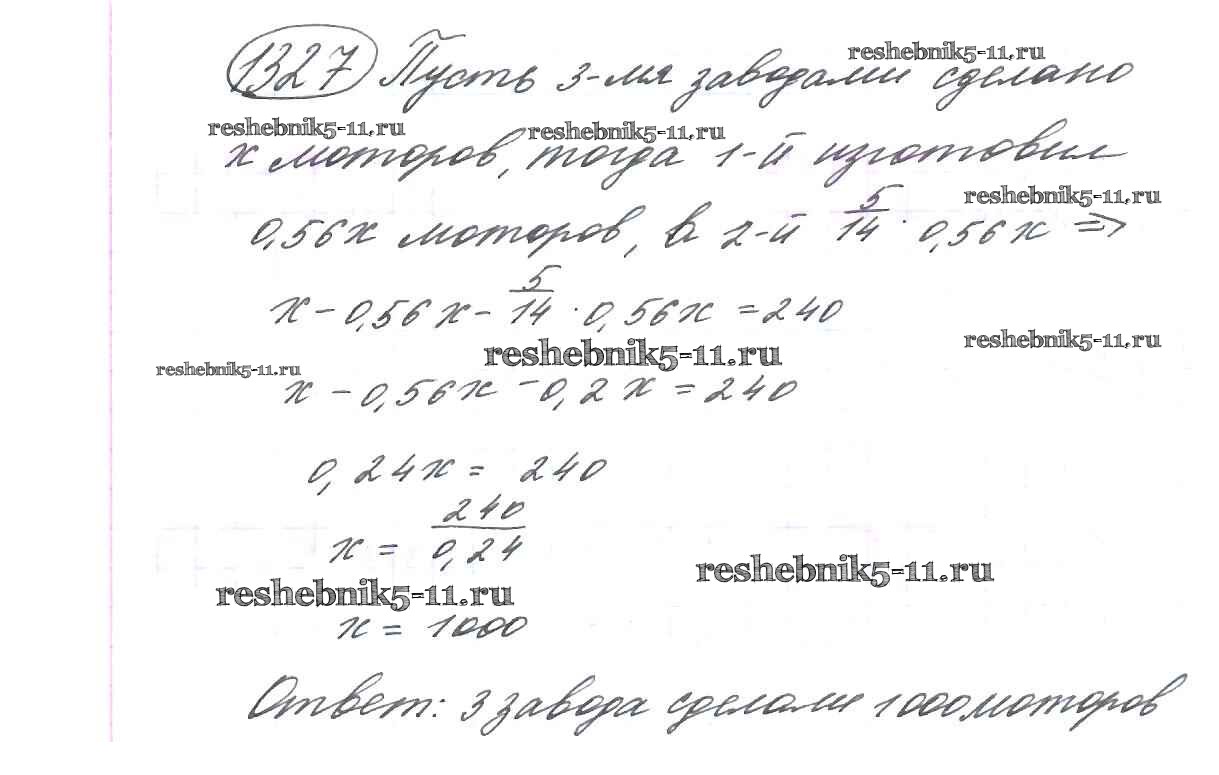 1327 Пусть 3-мя заводами сделано
reshebnik5-11.ru
reshebnik5-11.ru reshebnik5-11.ru
x моторов, тогда 1-й изготовил
reshebnik5-11.ru
0,56x моторов, а 2-й 5/14 · 0,56x =>
x - 0,56x - 5/14 · 0,56x = 240
reshebnik5-11.ru reshebnik5-11.ru
reshebnik5-11.ru
x - 0,56x - 0,2x = 240
0,24x = 240
x = 240/0,24
reshebnik5-11.ru reshebnik5-11.ru
x = 1000
Ответ: 3 завода сделали 1000 моторов